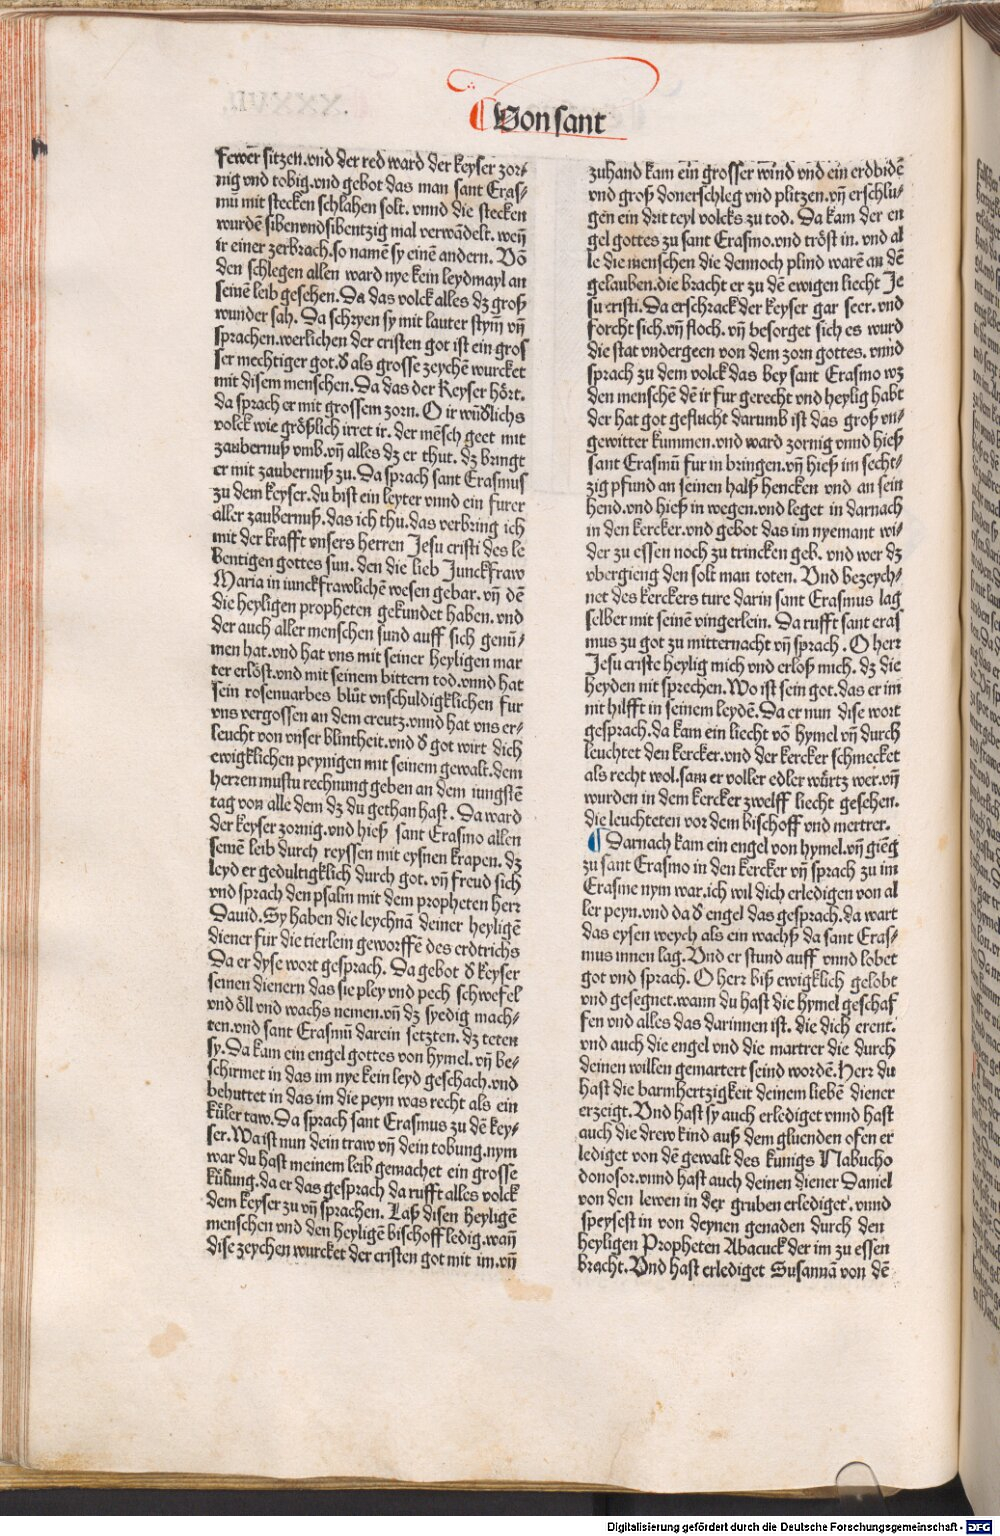 Von sant
fewer sitzen.vnd der red ward der keyser zor⸗
nig vnd tobig.vnd gebot das man sant Eras⸗
mū mit stecken schlahen solt. vnnd die stecken
wurdē sibenvndsibentzig mal verwādelt. weñ
ir einer zerbrach.so namē sy einē andern. Vō
den schlegen allen ward nye kein leydmayl an
seinē leib gesehen. Da das volck alles dz groß
wunder sah. Da schryen sy mit lauter stym̄ vñ
sprachen.werlichen der cristen got ist ein gros
ser mechtiger got.đ als grosse zeychē wurcket
mit disem menschen. Da das der Keyser hört.
da sprach er mit grossem zorn. O ir wūđlichs
volck wie größlich irret ir. der mēsch geet mit
zaubernuß vmb.vñ alles dz er thut. dz bringt
er mit zaubernuß zu. Da sprach sant Erasmus
zu dem keyser.du bist ein leyter vnnd ein furer
aller zaubernuß.das ich thu.das verbring ich
mit der krafft vnsers herren Jesu cristi des le
bentigen gottes sun. den die lieb Junckfraw
Maria in iunckfrawlichē wesen gebar. vñ dē
die heyligen propheten gekundet haben. vnd
der auch aller menschen sund auff sich genū⸗
men hat.vnd hat vns mit seiner heyligen mar
ter erlöst.vnd mit seinem bittern tod.vnnd hat
sein rosenuarbes blůt vnschuldigklichen fur
vns vergossen an dem creutz.vnnd hat vns er⸗
leucht von vnser blintheit.vnd đ got wirt dich
ewigklichen peynigen mit seinem gewalt.dem
herren mustu rechnung geben an dem iungstē
tag von alle dem dz du gethan hast. Da ward
der keyser zornig.vnd hieß sant Erasmo allen
seinē leib durch reyssen mit eysnen krapen. dz
leyd er gedultigklich durch got. vñ freud sich
vnd sprach den psalm mit dem propheten herr
Dauid. Sy haben die leychnā deiner heyligē
diener für die tierlein geworffē des erdtrichs
Da er dyse wort gesprach. Da gebot đ keyser
seinen dienern das sie pley vnd pech schwefel
vnd öll vnd wachs nemen.vñ dz syedig mach⸗
ten.vnd sant Erasmū darein setzten. dz teten
sy. Da kam ein engel gottes von hymel. vñ be⸗
schirmet in das im nye kein leyd geschach.vnd
behuttet in das im die peyn was recht als ein
kůler taw. Da sprach sant Erasmus zu dē key⸗
ser. Wa ist nun dein traw vñ dein tobung.nym
war du hast meinem leib gemachet ein grosse
kůlung.da er das gesprach da rufft alles volck
dem keyser zu vñ sprachen. Laß disen heyligē
menschen vnd den heyligē bischoff ledig.wañ
dise zeychen wurcket der cristen got mit im.vñ
zuhand kam ein grosser wind vnd ein erdbidē
vnd groß donerschleg vnd plitzen.vñ erschlu⸗
gen ein drit teyl volcks zu tod. Da kam der en
gel gottes zu sant Erasmo.vnd tröst in. vnd al
le die menschen die dennoch plind warē an dē
gelauben.die bracht er zu dē ewigen liecht Je
su cristi. Da erschrack der keyser gar seer. vnd
forcht sich.vñ floch. vñ besorget sich es wurd
die stat vndergeen von dem zorn gottes. vnnd
sprach zu dem volck das bey sant Erasmo wz
den menschē dē ir fur gerecht vnd heylig habt
der hat got geflucht darumb ist das groß vn⸗
gewitter kummen.vnd ward zornig vnnd hieß
sant Erasmū fur in bringen.vñ hieß im secht⸗
zig pfund an seinen halß hencken vnd an sein
hend.vnd hieß in wegen.vnd leget in darnach
in den kercker.vnd gebot das im nyemant wi⸗
der zu essen noch zu trincken geb. vnd wer dz
vbergieng den solt man toten. Vnd bezeych⸗
net des kerckers ture darin sant Erasmus lag
selber mit seinē vingerlein. Da rufft sant eras
mus zu got zu mitternacht vñ sprach. O herr
Jesu criste heylig mich vnd erlöß mich. dz die
heyden nit sprechen. Wo ist sein got.das er im
nit hilfft in seinem leydē. Da er nun dise wort
gesprach.da kam ein liecht vō hymel vñ durch
leuchtet den kercker.vnd der kercker schmecket
als recht wol.sam er voller edler würtz wer.vñ
wurden in dem kercker zwelff liecht gesehen.
die leuchteten vor dem bischoff vnd mertrer.
Darnach kam ein engel von hymel.vñ giēg
zu sant Erasmo in den kercker vñ sprach zu im
Erasme nym war.ich wil dich erledigen von al
ler peyn.vnd da đ engel das gesprach.da wart
das eysen weych als ein wachß da sant Eras⸗
mus innen lag. Vnd er stund auff vnnd lobet
got vnd sprach. O herr biß ewigklich gelobt
vnd gesegnet.wann du hast die hymel geschaf
fen vnd alles das darinnen ist. die dich erent.
vnd auch die engel vnd die martrer die durch
deinen willen gemartert seind wordē. Herr du
hast die barmhertzigkeit deinem liebē diener
erzeigt. Vnd hast sy auch erlediget vnnd hast
auch die drew kind auß dem gluenden ofen er
lediget von dē gewalt des kunigs Nabucho
donosor.vnnd hast auch deinen diener Daniel
von den lewen in der gruben erlediget. vnnd
speysest in von deynen genaden durch den
heyligen Propheten Abacuck der im zu essen
bracht. Vnd hast erlediget Susannā von dē
Digitalisierung gefördert durch die Deutsche Forschungsgemeinschaft - DFG